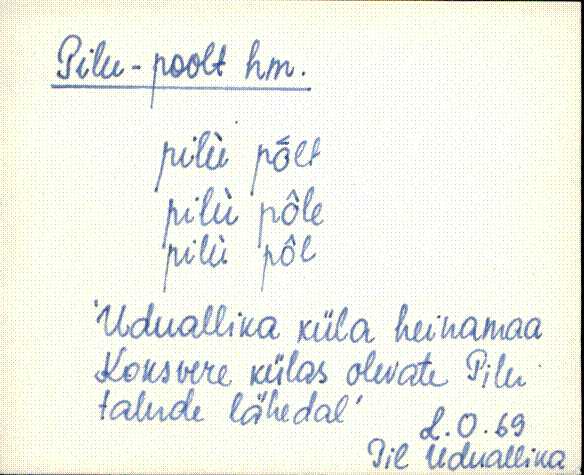 Pilu-poolt hm.
pilù pȭlt
pilù pôle
pilù pôl
'Uduallika küla heinamaa
Koksvere külas olevate Pilu
talude lähedal'
L.O.69
Pil Uduallika